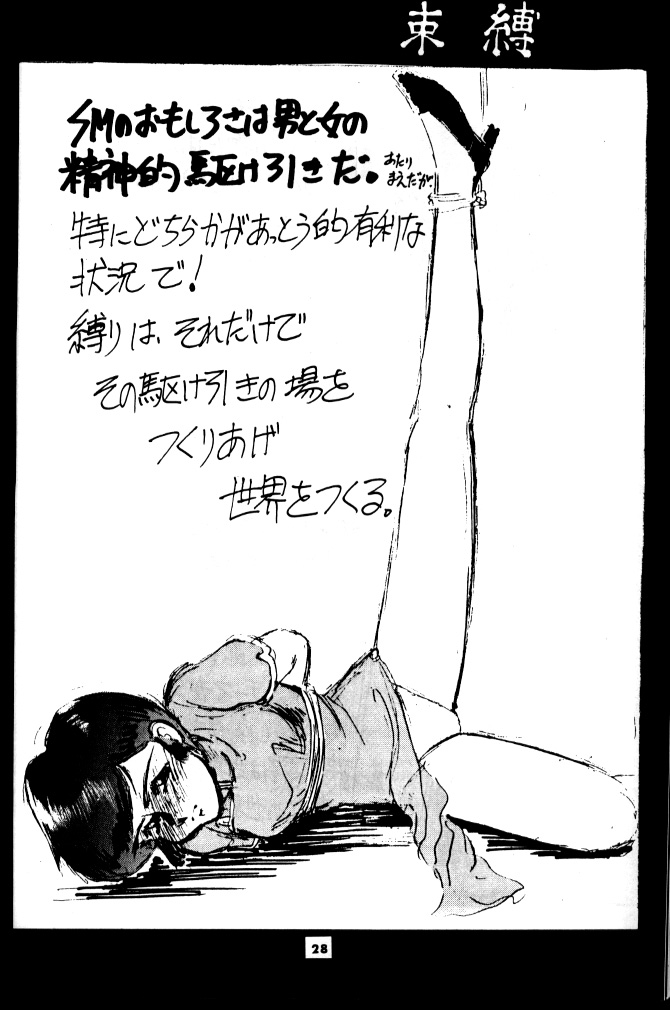 束縛
SMのおもしろさは男と女の
精神的駆け引きだ。あたり
まえだが、
特にどちらかがあっとう的有利な
状況で!
縛りは、それだけで
その駆け引きの場を
つくりあげ
世界をつくる。
28